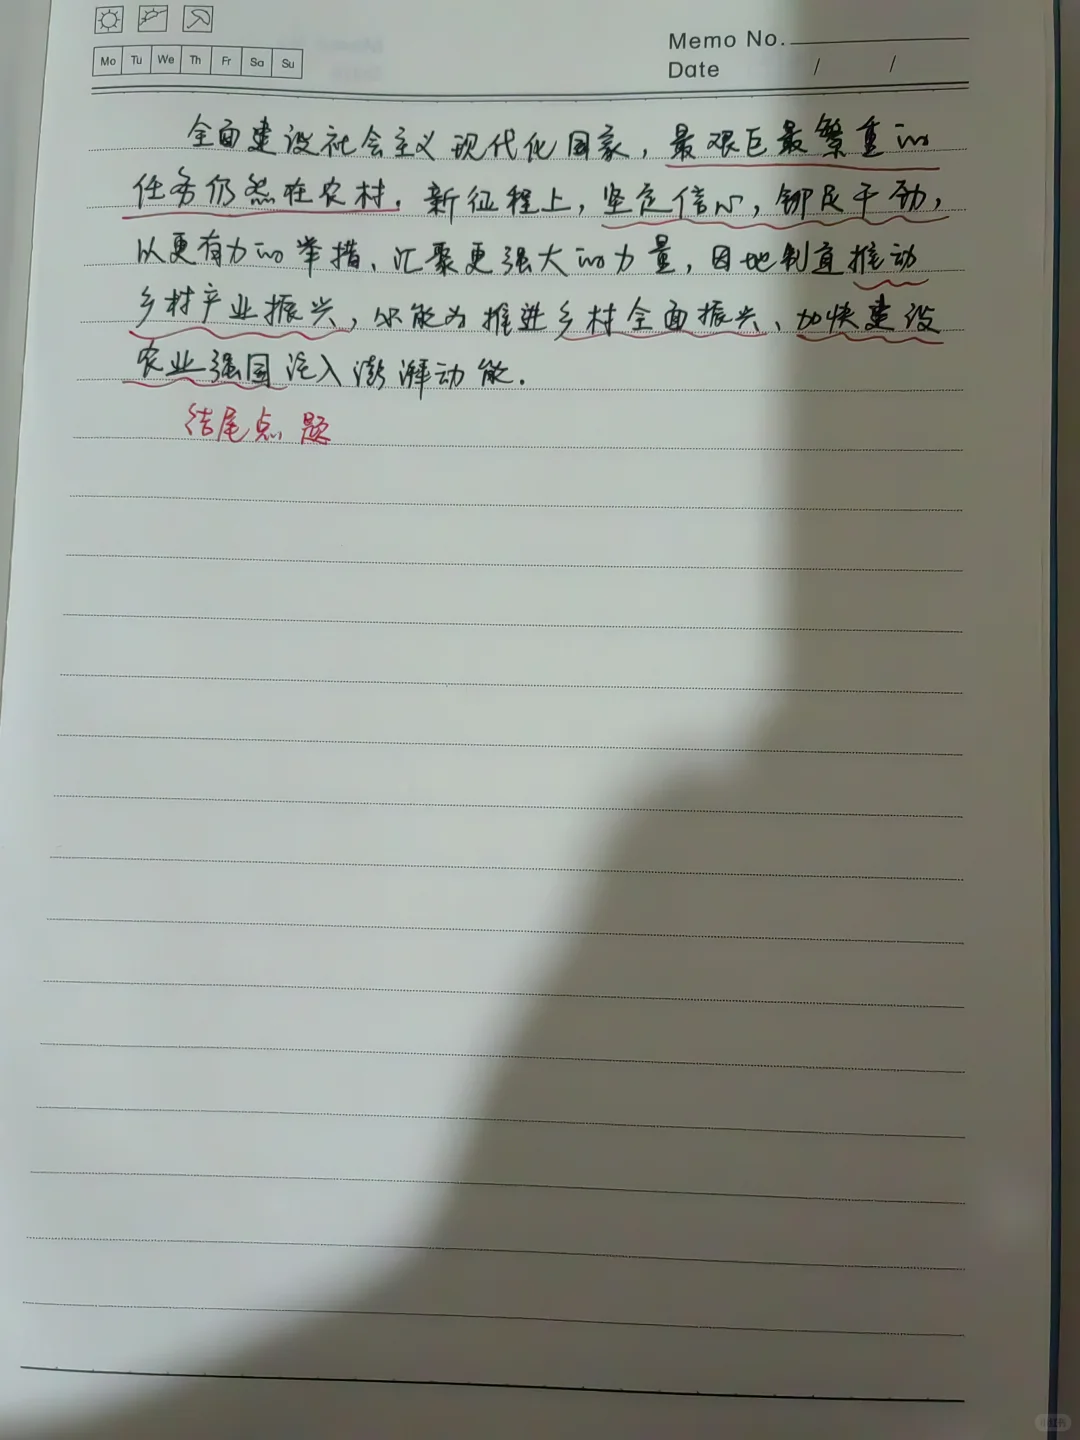 Memo No.
Mo Tu We Th Fr Sa Su
Date / /
全面建设社会主义现代化国家，最艰巨最繁重的
任务仍然在农村。新征程上，坚定信心，铆足干劲，
以更有力的举措、汇聚更强大的力量，因地制宜推动
乡村产业振兴，必能为推进乡村全面振兴、加快建设
农业强国注入澎湃动能.
结尾点题